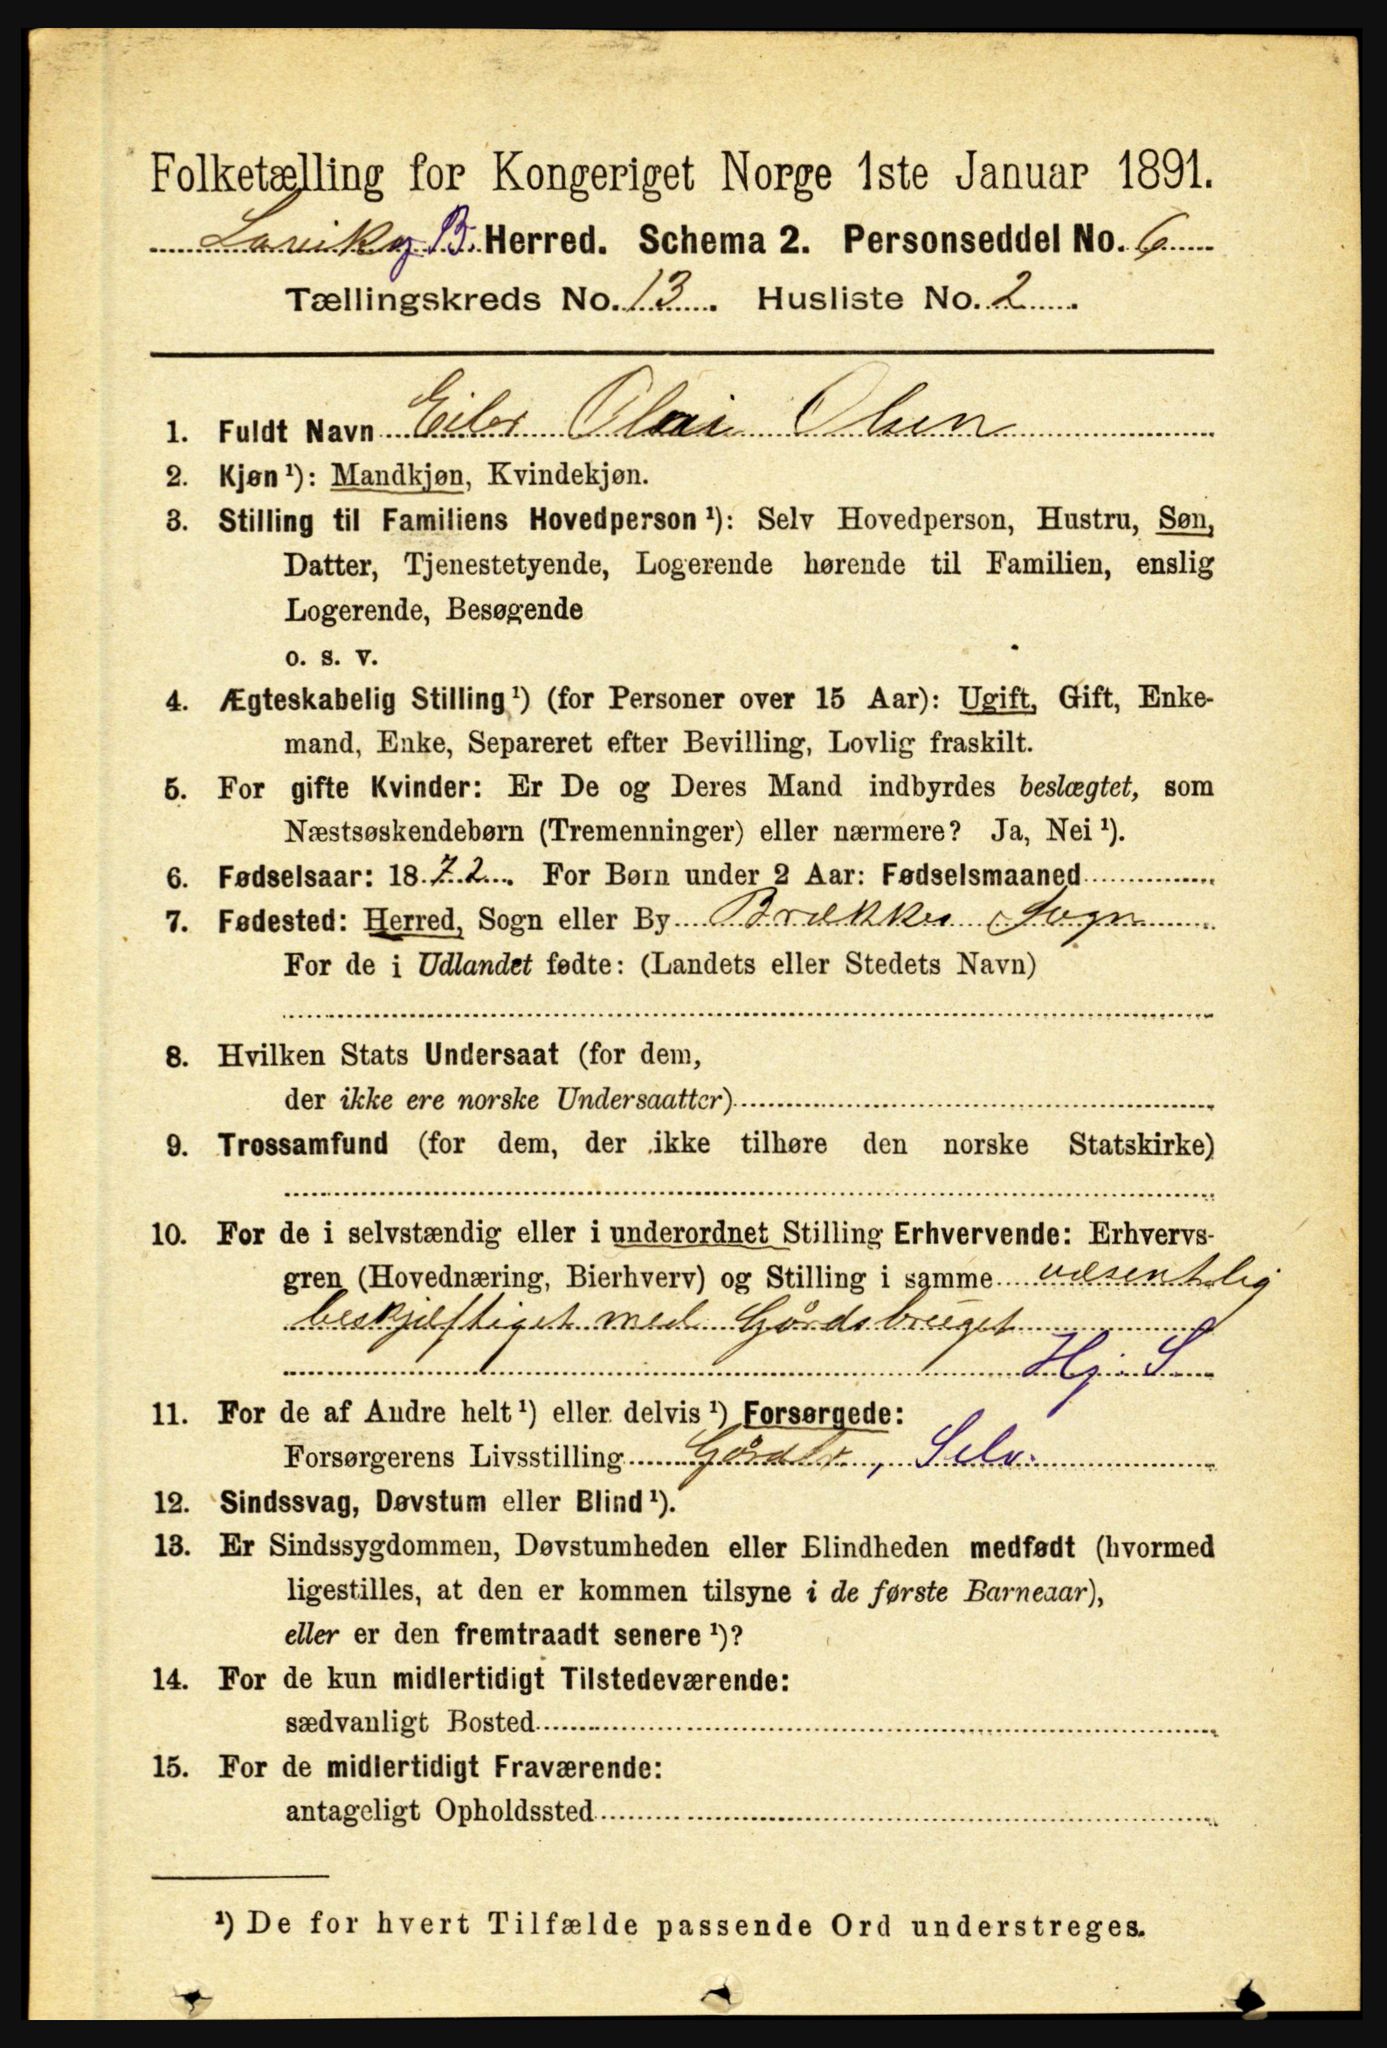 Folketælling for Kongeriget Norge 1ste Januar 1891.
Lavik og B. Herred. Schema 2. Personseddel No. 6
Tællingskreds No. 13. Husliste No. 2.
1. Fuldt Navn Eiler Olai Olsen
2. Kjøn ¹): Mandkjøn, Kvindekjøn.
3. Stilling til Familiens Hovedperson ¹): Selv Hovedperson, Hustru, Søn,
Datter, Tjenestetyende, Logerende hørende til Familien, enslig
Logerende, Besøgende
o. s. v.
4. Ægteskabelig Stilling ¹) (for Personer over 15 Aar): Ugift, Gift, Enke-
mand, Enke, Separeret efter Bevilling, Lovlig fraskilt.
5. For gifte Kvinder: Er De og Deres Mand indbyrdes beslægtet, som
Næstsøskendebørn (Tremenninger) eller nærmere? Ja, Nei ¹).
6. Fødselsaar: 1872. For Børn under 2 Aar: Fødselsmaaned
7. Fødested: Herred, Sogn eller By Brække Sogn
For de i Udlandet fødte: (Landets eller Stedets Navn)
8. Hvilken Stats Undersaat (for dem,
der ikke ere norske Undersaatter)
9. Trossamfund (for dem, der ikke tilhøre den norske Statskirke)
10. For de i selvstændig eller i underordnet Stilling Erhvervende: Erhvervs-
gren (Hovednæring, Bierhverv) og Stilling i samme væsentlig
beskjæftiget med Gårdsbruget
Hj. S.
11. For de af Andre helt ¹) eller delvis ¹) Forsørgede:
Forsørgerens Livsstilling Gårdbr, Selv.
12. Sindssvag, Døvstum eller Blind ¹).
13. Er Sindssygdommen, Døvstumheden eller Blindheden medfødt (hvormed
ligestilles, at den er kommen tilsyne i de første Barneaar),
eller er den fremtraadt senere ¹)?
14. For de kun midlertidigt Tilstedeværende:
sædvanligt Bosted
15. For de midlertidigt Fraværende:
antageligt Opholdssted
¹) De for hvert Tilfælde passende Ord understreges.